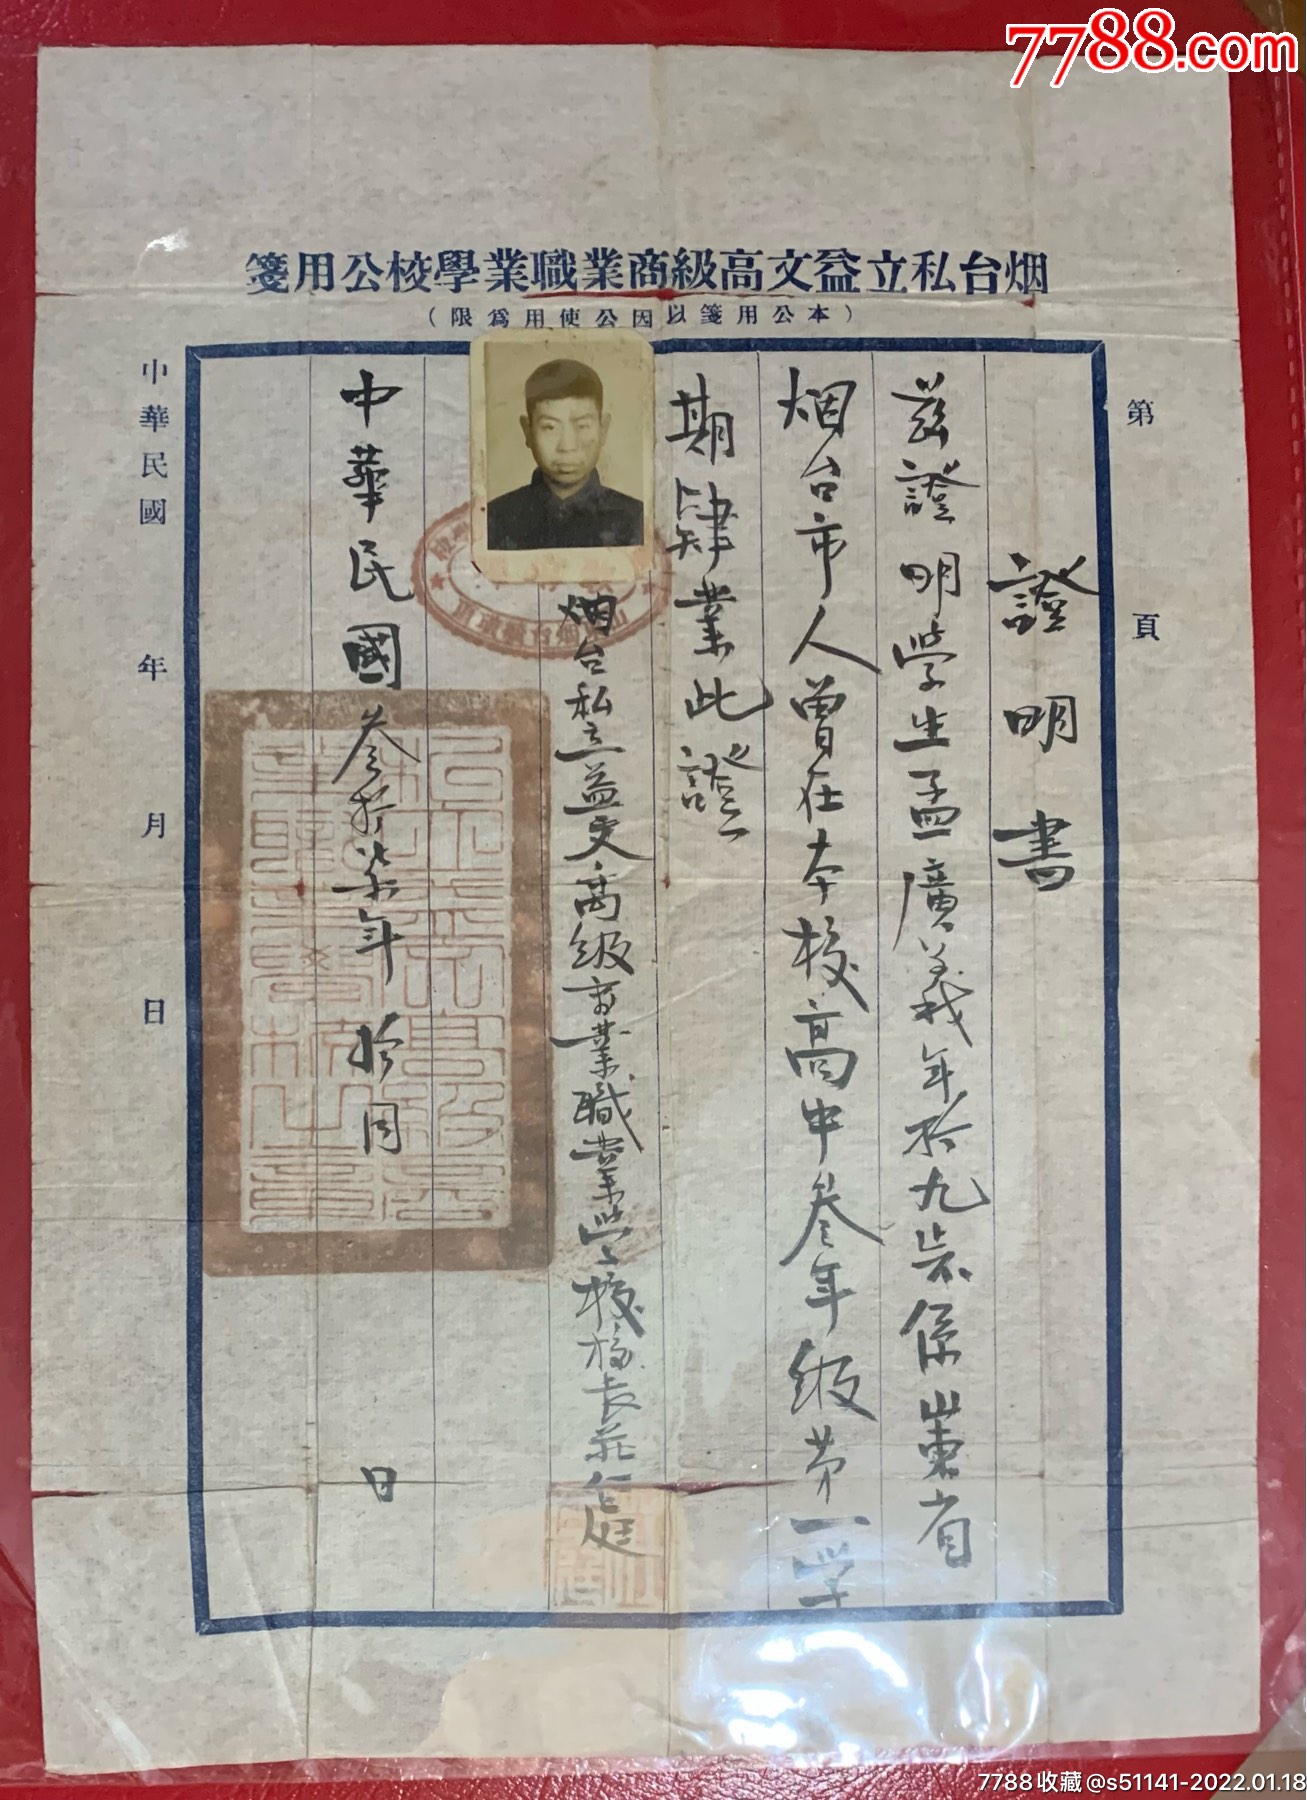 7788.com
烟台私立益文高級商業職業學校公用箋
（本公用箋以因公使用為限）
第　頁
證明書
茲證明學生孟廣義年拾九歲係山東省
烟台市人曾在本校高中叁年級第一學
期肄業此證
烟台私立益文高級商業職業學校校長
中華民國叁拾柒年拾月　日
中華民國　年　月　日
7788收藏@s51141-2022.01.18